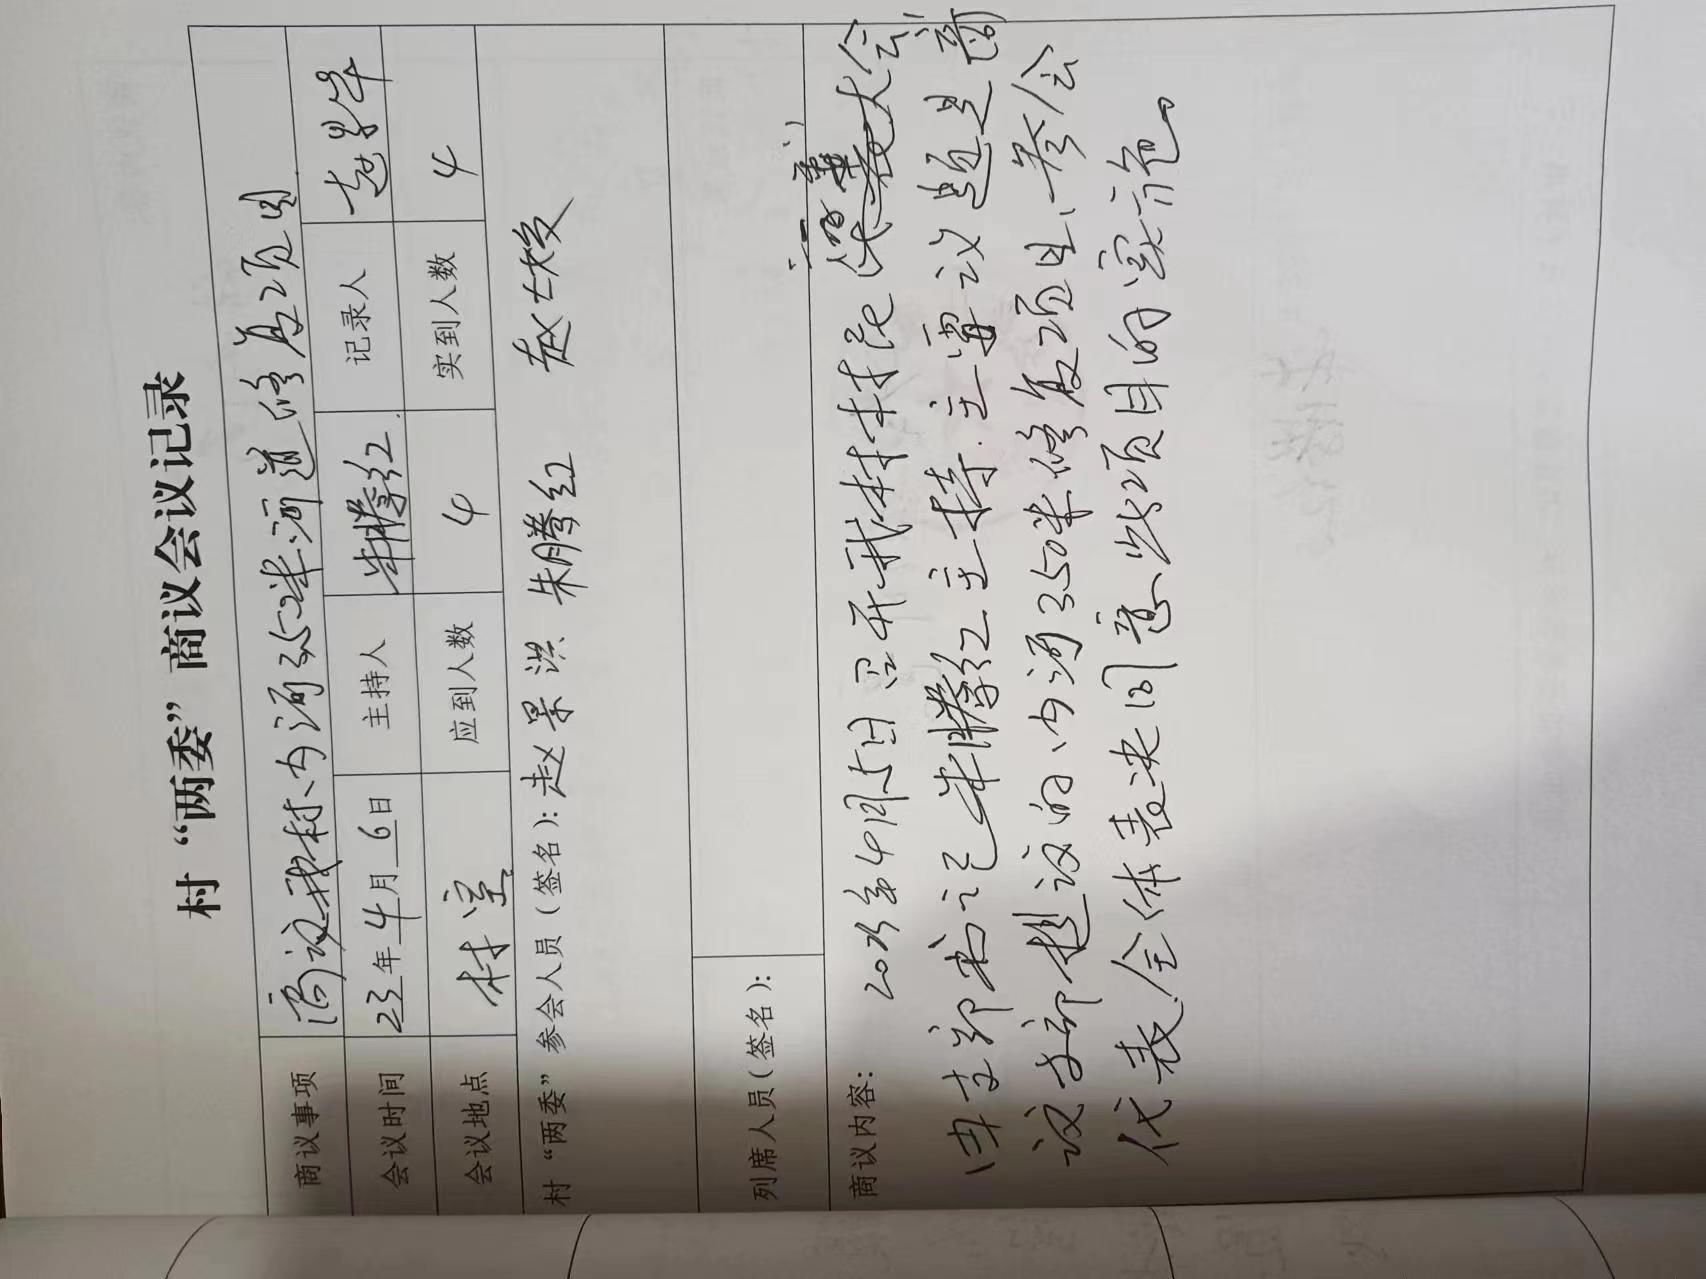 村“两委”商议会议记录
商议事项 商议我村内河350米河道修复项目
会议时间 23年4月6日 主持人 朱腾红 记录人
会议地点 村室 应到人数 4 实到人数 4
村“两委”参会人员(签名): 赵景洪 朱腾红 赵
列席人员(签名):
商议内容: 2023年4月5日召开我村村 大会
由支部书记朱腾红主持.主要议题是商
议支部提议的内河350米修复项目、参会
代表全体表决同意此项目的实施。